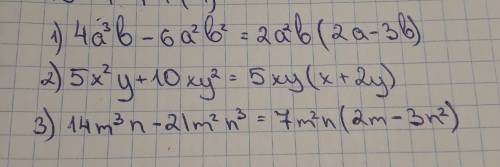 1) 4a³b - 6a²b² = 2a²b(2a-3b)
2) 5x²y + 10xy² = 5xy(x + 2y)
3) 14m³n - 21m²n³ = 7m²n(2m - 3n²)